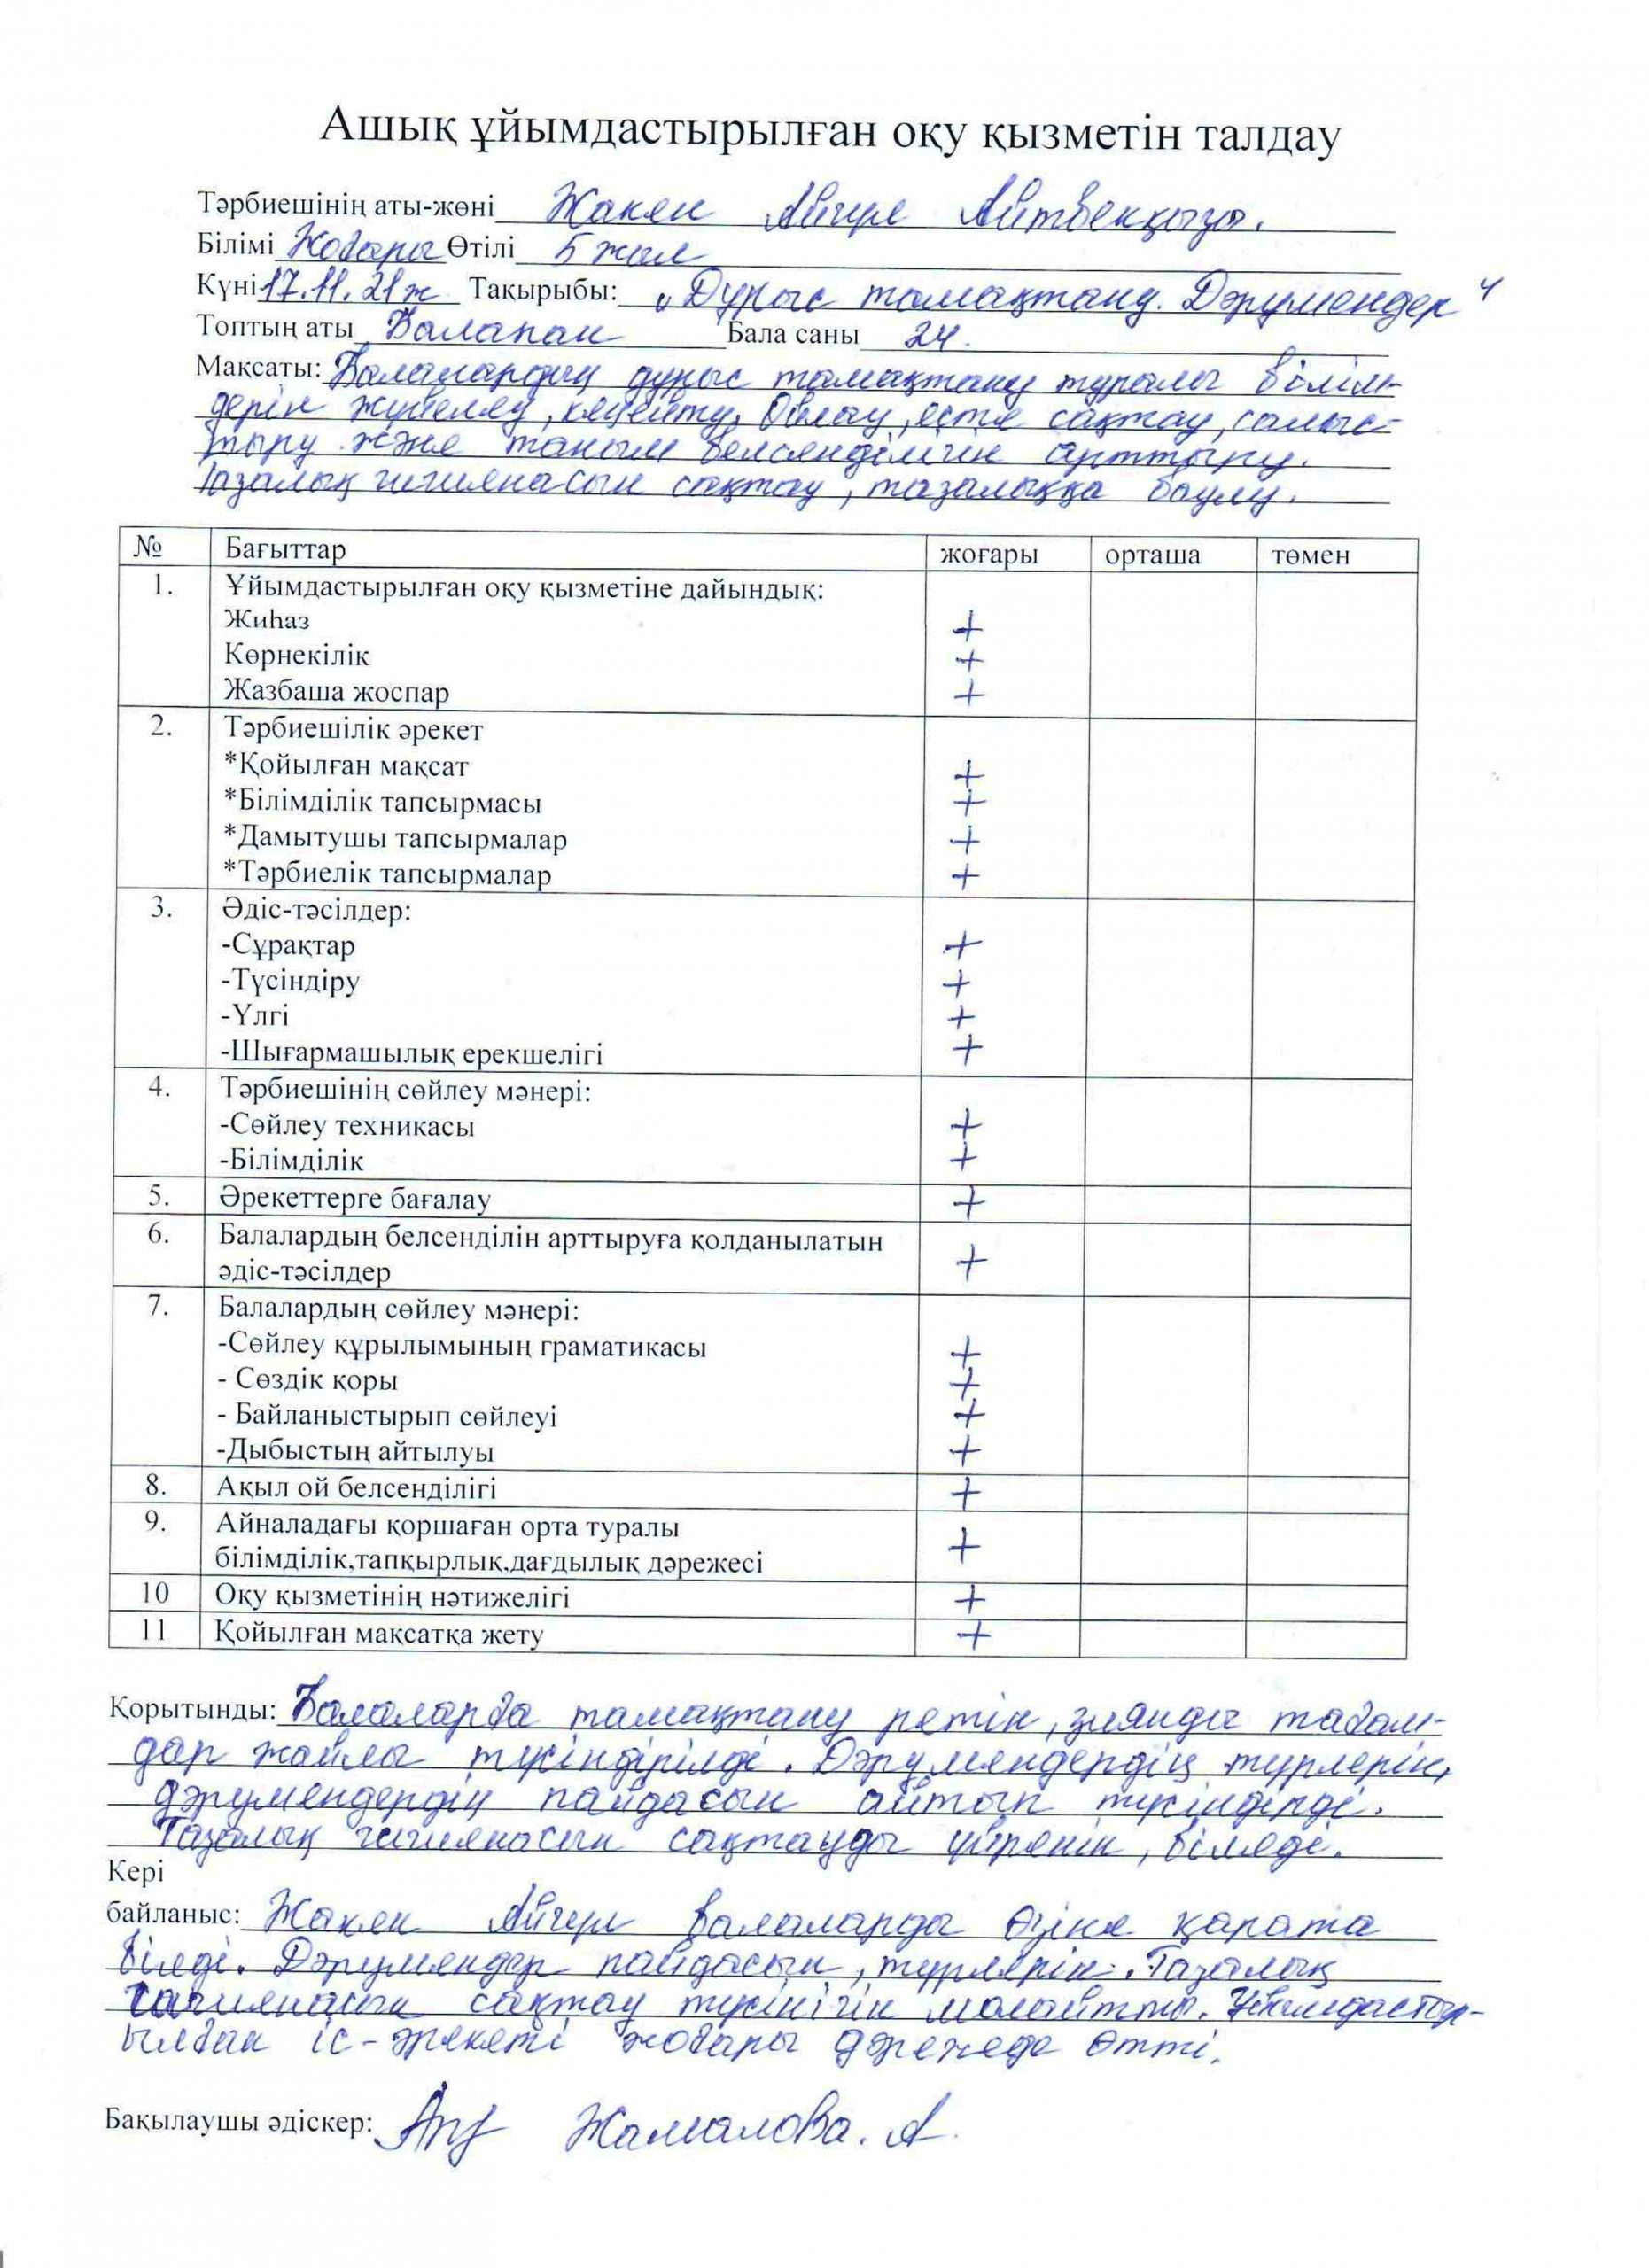 Ашық ұйымдастырылған оқу қызметін талдау
Тәрбиешінің аты-жөні Жакен Айгүл Айтбекқызы.
Білімі Жоғары Өтілі 5 жыл
Күні 17.11.21ж Тақырыбы: „Дұрыс тамақтану. Дәрумендер"
Топтың аты Балапан Бала саны 24.
Мақсаты: Балалардың дұрыс тамақтану туралы білім-
дерін жүйелеу, кеңейту. Ойлау, есте сақтау, салыс-
тыру және таным белсенділігін арттыру.
Тазалық гигиенасын сақтау, тазалыққа баулу.
№ Бағыттар жоғары орташа төмен
1. Ұйымдастырылған оқу қызметіне дайындық:
Жиһаз +
Көрнекілік +
Жазбаша жоспар +
2. Тәрбиешілік әрекет
*Қойылған мақсат +
*Білімділік тапсырмасы +
*Дамытушы тапсырмалар +
*Тәрбиелік тапсырмалар +
3. Әдіс-тәсілдер:
-Сұрақтар +
-Түсіндіру +
-Үлгі +
-Шығармашылық ерекшелігі +
4. Тәрбиешінің сөйлеу мәнері:
-Сөйлеу техникасы +
-Білімділік +
5. Әрекеттерге бағалау +
6. Балалардың белсенділін арттыруға қолданылатын
әдіс-тәсілдер +
7. Балалардың сөйлеу мәнері:
-Сөйлеу құрылымының граматикасы +
- Сөздік қоры +
- Байланыстырып сөйлеуі +
-Дыбыстың айтылуы +
8. Ақыл ой белсенділігі +
9. Айналадағы қоршаған орта туралы
білімділік,тапқырлық,дағдылық дәрежесі +
10 Оқу қызметінің нәтижелігі +
11 Қойылған мақсатқа жету +
Қорытынды: Балаларға тамақтану ретін, зиянды тағам-
дар жайлы түсіндірілді. Дәрумендердің түрлерін,
дәрумендердің пайдасын айтып түсіндірді.
Тазалық гигиенасын сақтауды үйреніп, біледі.
Кері
байланыс: Жакен Айгүл балаларды өзіне қарата
білді. Дәрумендер пайдасын, түрлерін. Тазалық
гигиенасын сақтау түсінігін молайтты. Ұйымдастыр-
ылған іс-әрекеті жоғары дәрежеде өтті.
Бақылаушы әдіскер: Жамалова. А.